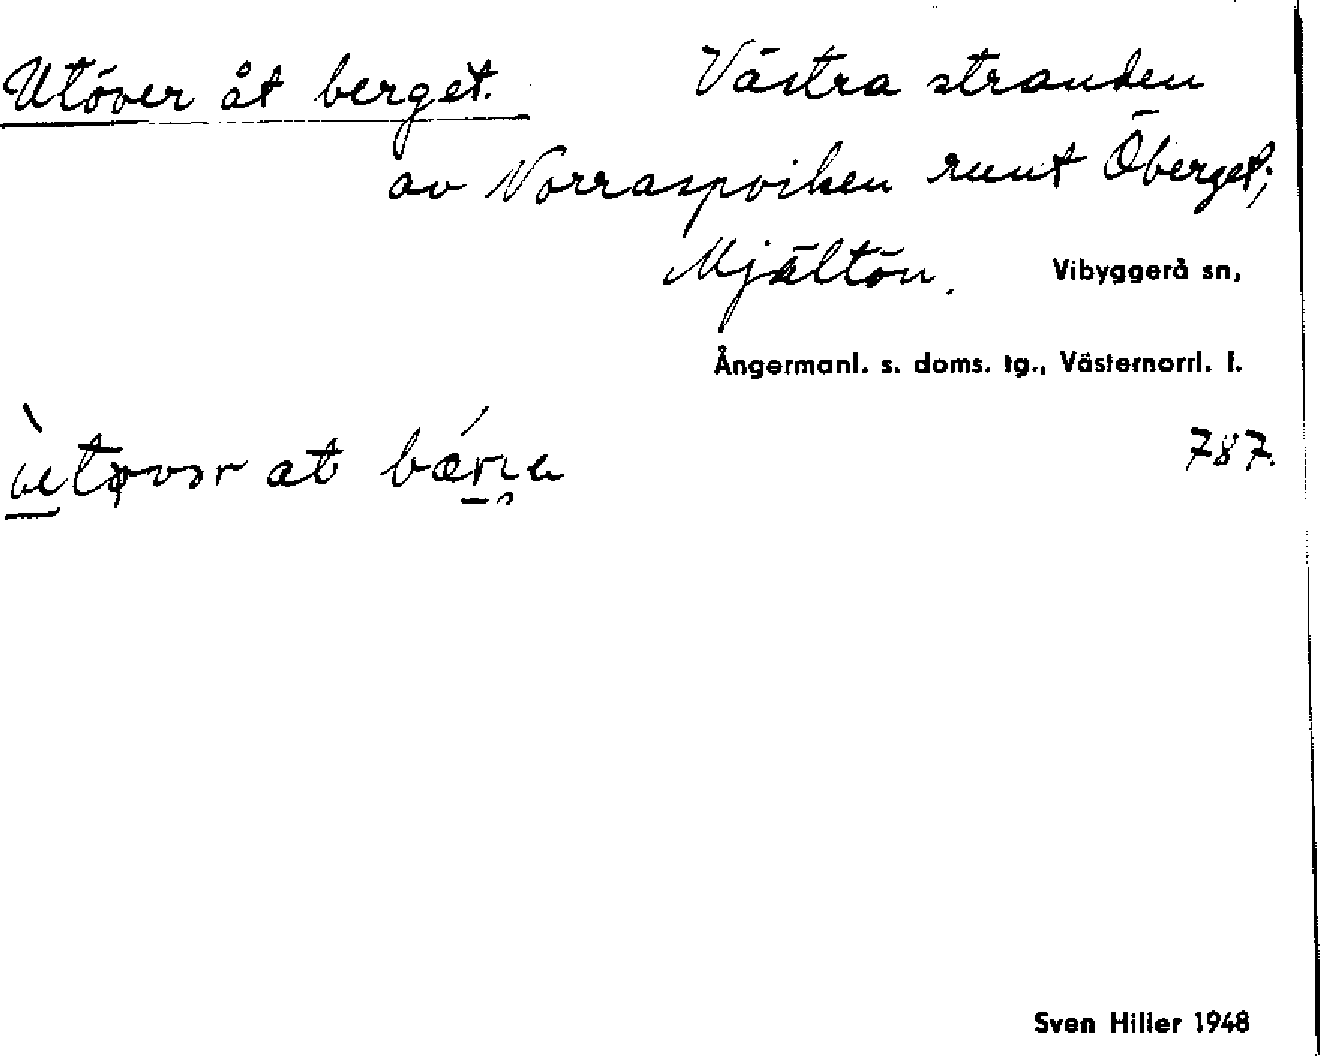 Utöver åt berget. Västra stranden
av Norraspviken runt Öberget;
Mjältön. Vibyggerå sn,
Ångermanl. s. doms. tg., Västernorrl. l.
787.
Sven Hiller 1948